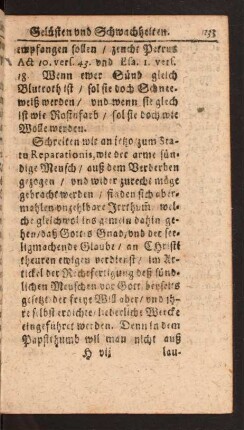 Gelüsten vnd Schwachheiten.
empfangen sollen / zeucht Petrus
Act 10. vers. 43. vnd Esa. 1. vers.
18. Wenn ewer Sünd gleich
Blutroth ist / sol sie doch Schnee-
weiß werden / vnd wenn sie glech
ist wie Rosinfarb / sol sie doch wie
Wolle werden.
Schreiten wir an jetzo zum Sta-
tu Reparationis, wie der arme sün-
dige Mensch / auß dem Verderben
gezogen / vnd wider zurecht möge
gebracht werden / finden sich aber-
mahlen vnzehlbare Irrthum. wel-
che gleichwol ins gemein dahin ge-
hen / daß Gottes Gnad / vnd der see-
ligmachende Glaube / an CHristi
theuren ewigen verdienst / im Ar-
tickel der Rechtfertigung deß sünd-
lichen Menschen vor Gott beyseits
gesetzt der freye Will aber / vnd jh-
re selbst erdichte / lieberliche Wercke
eingeführet werden. Denn in dem
Papsthumb wil man nicht auß
H vij lau-